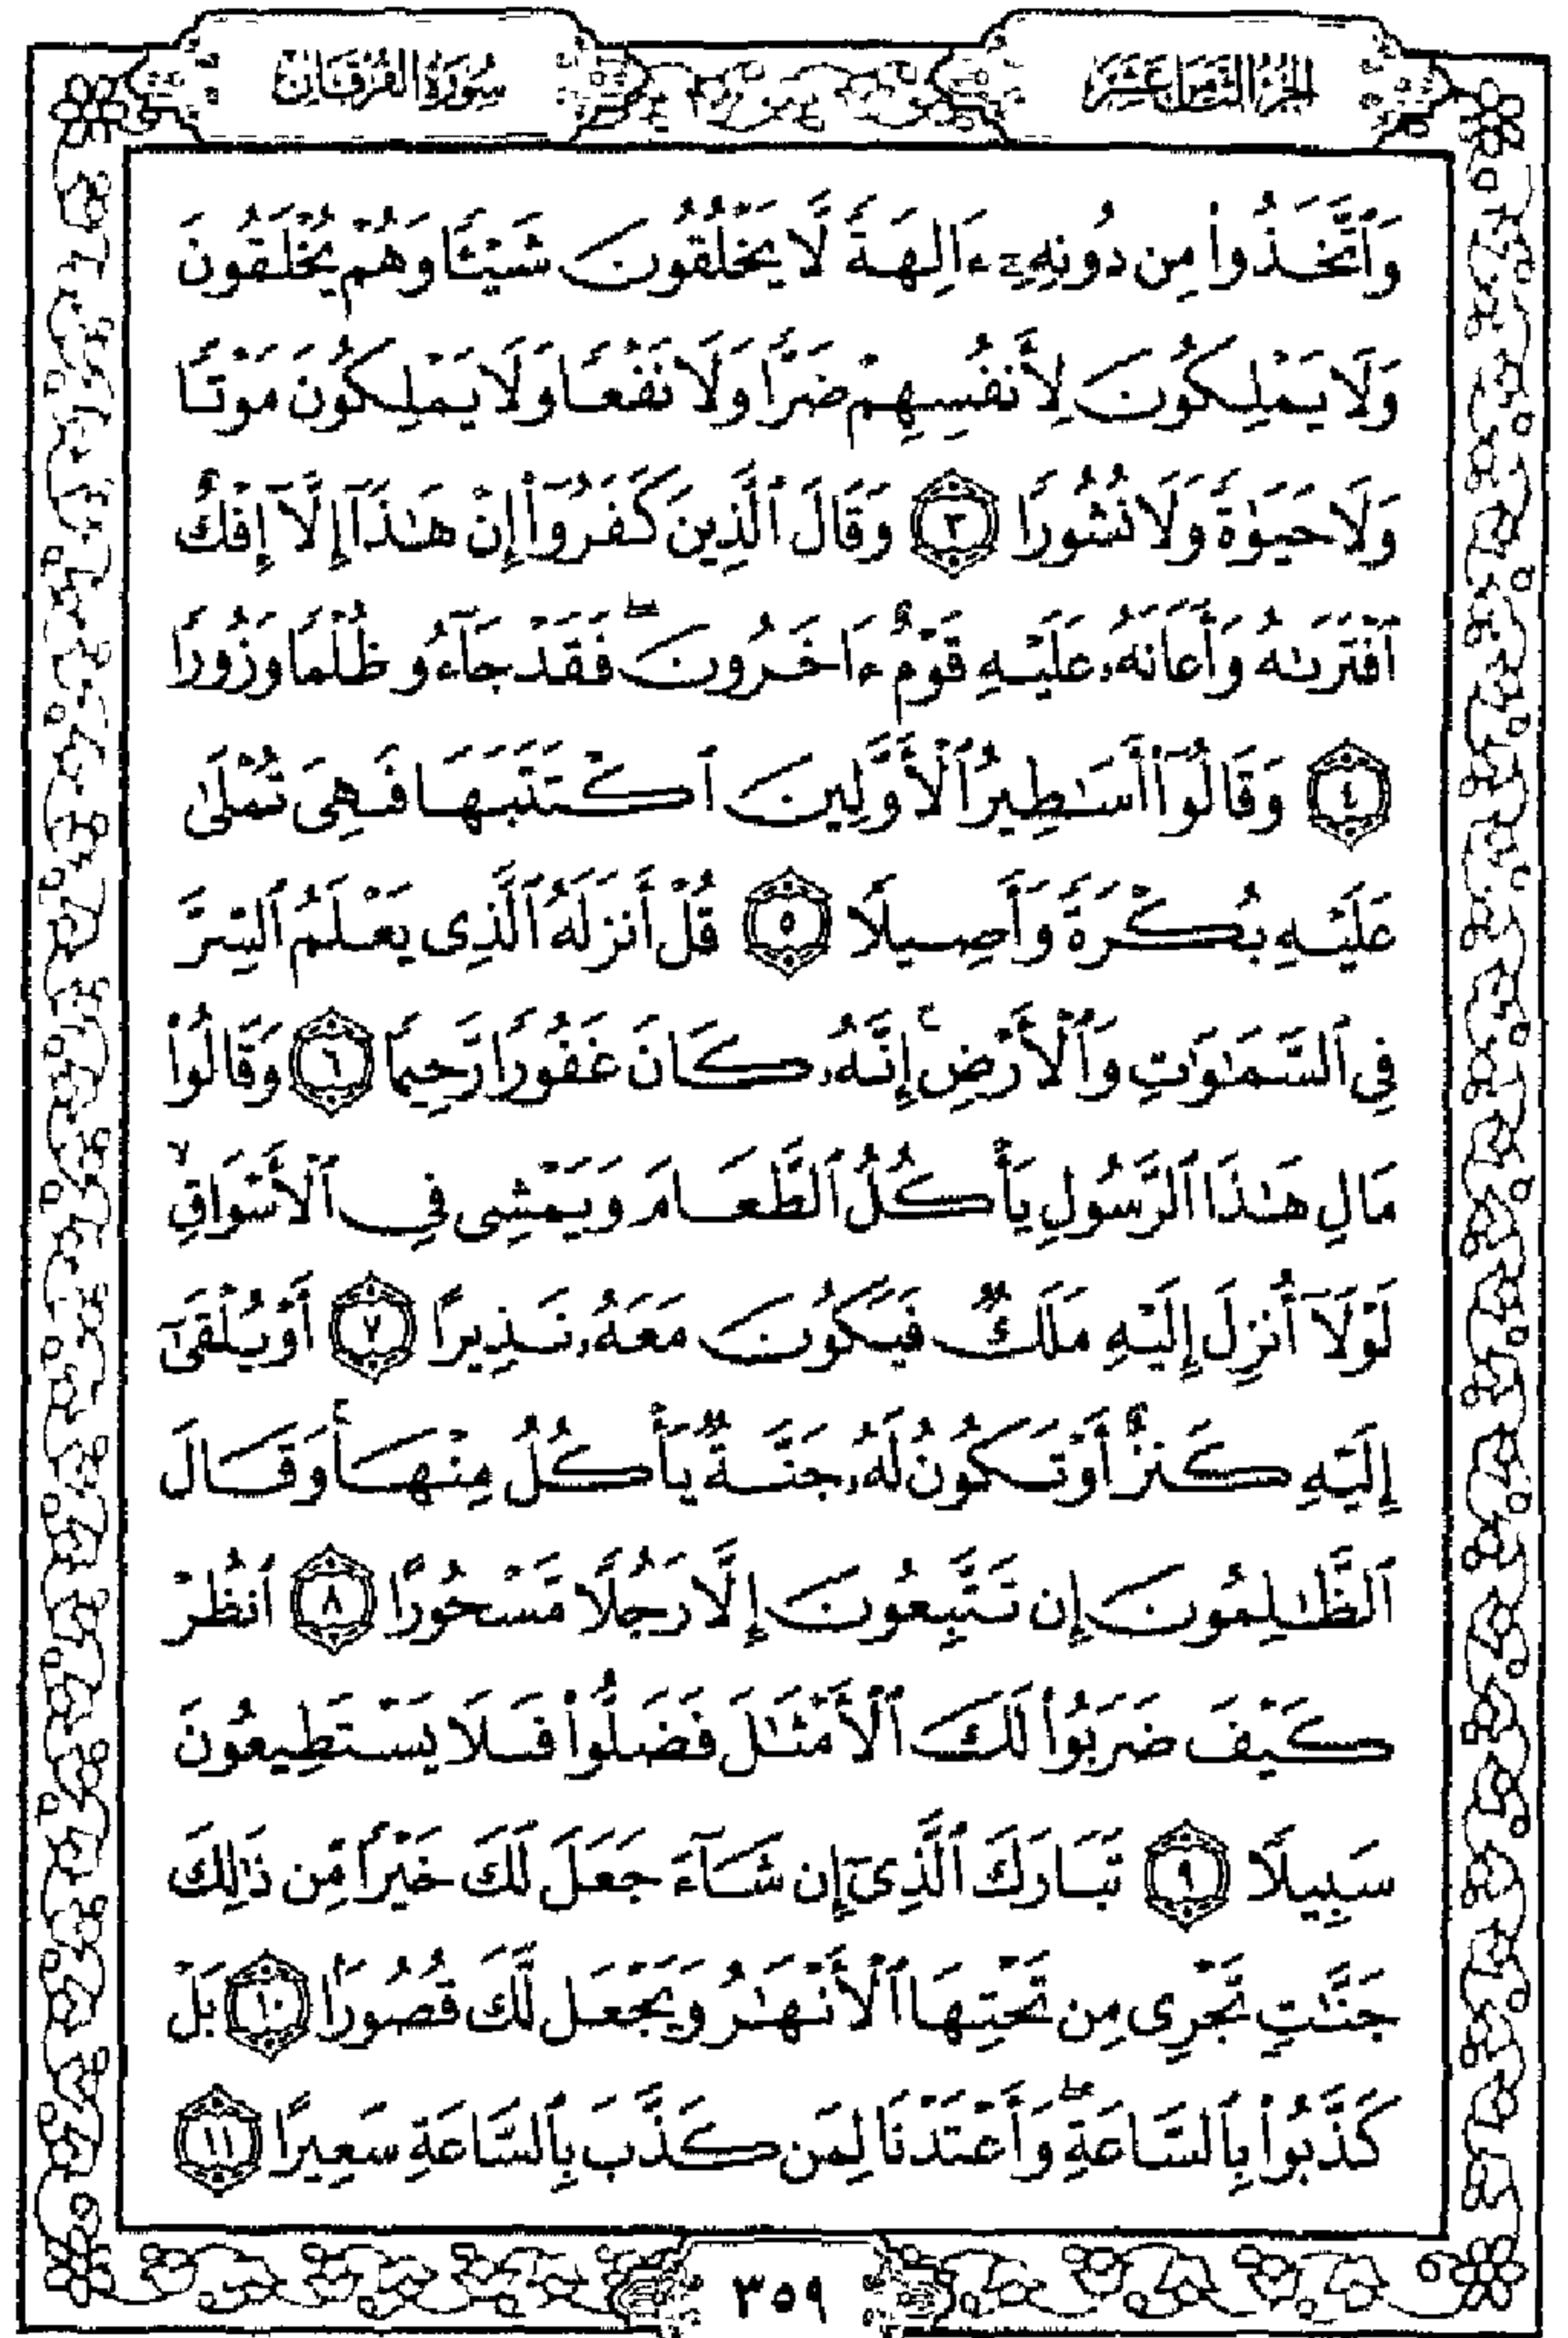 الجزء الثامن عشر
سورة الفرقان
وَٱتَّخَذُوا۟ مِن دُونِهِۦٓ ءَالِهَةً لَّا يَخْلُقُونَ شَيْـًٔا وَهُمْ يُخْلَقُونَ
وَلَا يَمْلِكُونَ لِأَنفُسِهِمْ ضَرًّا وَلَا نَفْعًا وَلَا يَمْلِكُونَ مَوْتًا
وَلَا حَيَوٰةً وَلَا نُشُورًا ٣ وَقَالَ ٱلَّذِينَ كَفَرُوٓا۟ إِنْ هَـٰذَآ إِلَّآ إِفْكٌ
ٱفْتَرَىٰهُ وَأَعَانَهُۥ عَلَيْهِ قَوْمٌ ءَاخَرُونَ ۖ فَقَدْ جَآءُو ظُلْمًا وَزُورًا
٤ وَقَالُوٓا۟ أَسَـٰطِيرُ ٱلْأَوَّلِينَ ٱكْتَتَبَهَا فَهِىَ تُمْلَىٰ
عَلَيْهِ بُكْرَةً وَأَصِيلًا ٥ قُلْ أَنزَلَهُ ٱلَّذِى يَعْلَمُ ٱلسِّرَّ
فِى ٱلسَّمَـٰوَٰتِ وَٱلْأَرْضِ ۚ إِنَّهُۥ كَانَ غَفُورًا رَّحِيمًا ٦ وَقَالُوا۟
مَالِ هَـٰذَا ٱلرَّسُولِ يَأْكُلُ ٱلطَّعَامَ وَيَمْشِى فِى ٱلْأَسْوَاقِ ۙ
لَوْلَآ أُنزِلَ إِلَيْهِ مَلَكٌ فَيَكُونَ مَعَهُۥ نَذِيرًا ٧ أَوْ يُلْقَىٰٓ
إِلَيْهِ كَنزٌ أَوْ تَكُونُ لَهُۥ جَنَّةٌ يَأْكُلُ مِنْهَا ۚ وَقَالَ
ٱلظَّـٰلِمُونَ إِن تَتَّبِعُونَ إِلَّا رَجُلًا مَّسْحُورًا ٨ ٱنظُرْ
كَيْفَ ضَرَبُوا۟ لَكَ ٱلْأَمْثَـٰلَ فَضَلُّوا۟ فَلَا يَسْتَطِيعُونَ
سَبِيلًا ٩ تَبَارَكَ ٱلَّذِىٓ إِن شَآءَ جَعَلَ لَكَ خَيْرًا مِّن ذَٰلِكَ
جَنَّـٰتٍ تَجْرِى مِن تَحْتِهَا ٱلْأَنْهَـٰرُ وَيَجْعَل لَّكَ قُصُورًا ١٠ بَلْ
كَذَّبُوا۟ بِٱلسَّاعَةِ ۖ وَأَعْتَدْنَا لِمَن كَذَّبَ بِٱلسَّاعَةِ سَعِيرًا ١١
٣٥٩